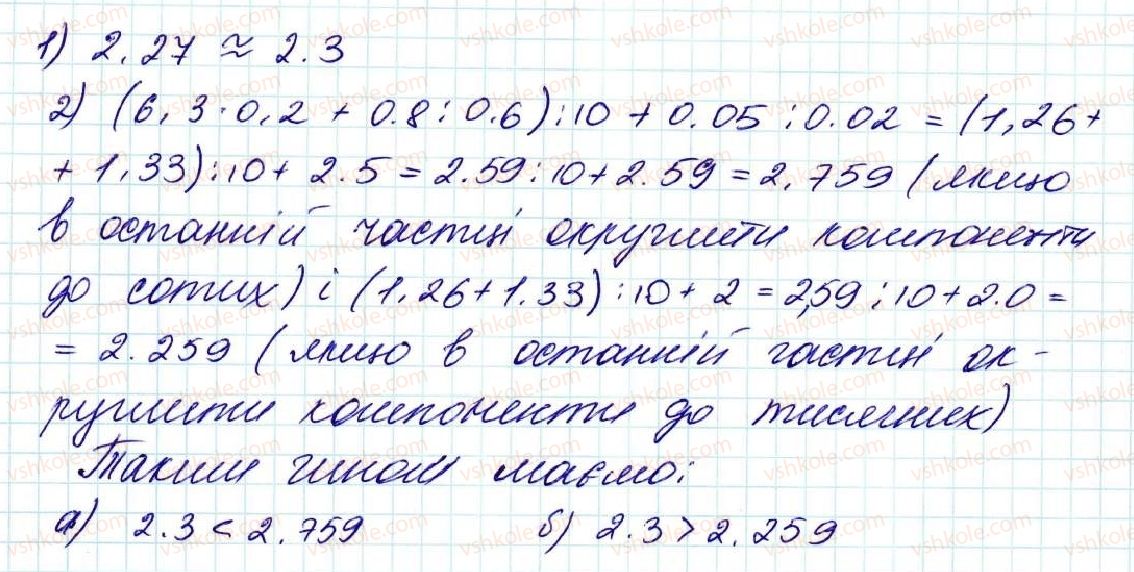 1) 2,27 ≈ 2.3
2) (6,3·0,2 + 0.8:0.6):10 + 0.05:0.02 = (1,26+
+ 1,33):10+ 2.5 = 2.59:10+2.59 = 2,759 (якщо
в останній частині округлити компоненти
до сотих) і (1,26+1.33):10+ 2 = 2,59:10+2.0 =
= 2.259 (якщо в останній частині ок-
руглити компоненти до тисячних)
Таким чином маємо:
а) 2.3 < 2,759 б) 2.3 > 2.259
vshkole.com